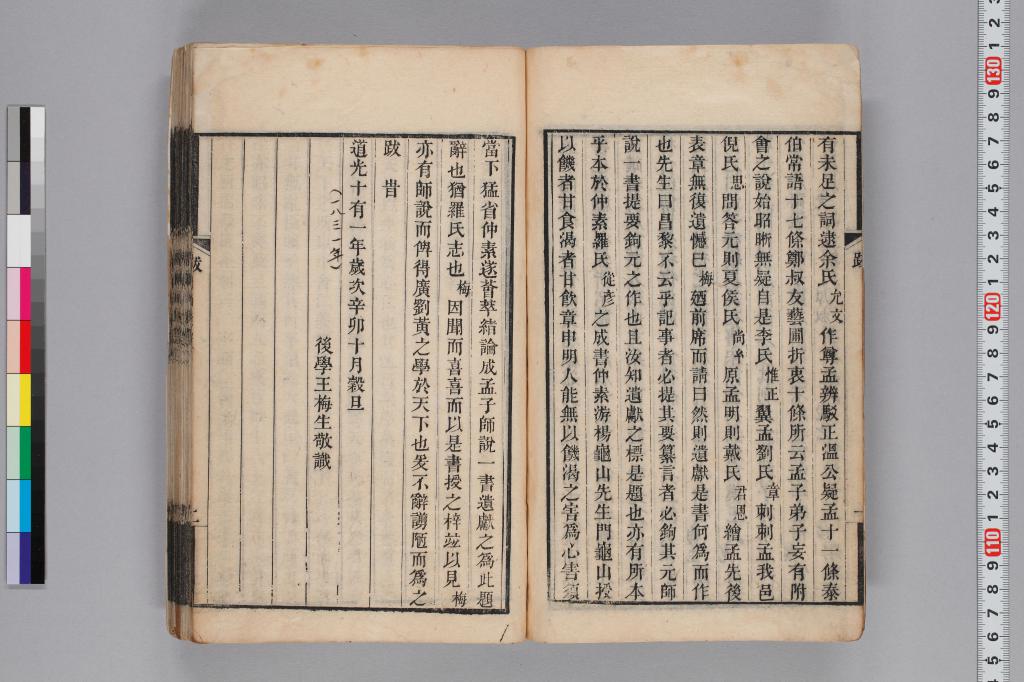 有未足之詞逮余氏允文作尊孟辨駁正溫公疑孟十一條泰
伯常語十七條鄭叔友藝圃折衷十條所云孟子弟子妄有附
會之說始昭晰無疑自是李氏惟正翼孟劉氏章刺刺孟我邑
倪氏思問答元則夏侯氏尚平原孟明則戴氏君恩繪孟先後
表章無復遺憾已梅廼前席而請曰然則遺獻是書何為而作
也先生曰昌黎不云乎記事者必提其要纂言者必鉤其元師
說一書提要鉤元之作也且汝知遺獻之標是題也亦有所本
乎本於仲素羅氏從彥之成書仲素游楊龜山先生門龜山授
以饑者甘食渴者甘飲章申明人能無以饑渴之害為心害須
當下猛省仲素遂薈萃結論成孟子師說一書遺獻之為此題
辭也猶羅氏志也梅因聞而喜喜而以是書授之梓竝以見梅
亦有師說而俾得廣劉黃之學於天下也爰不辭譾陋而為之
跋旹
道光十有一年歲次辛卯十月穀旦
(一八三一年)
後學王梅生敬識
跋
二
跋
一